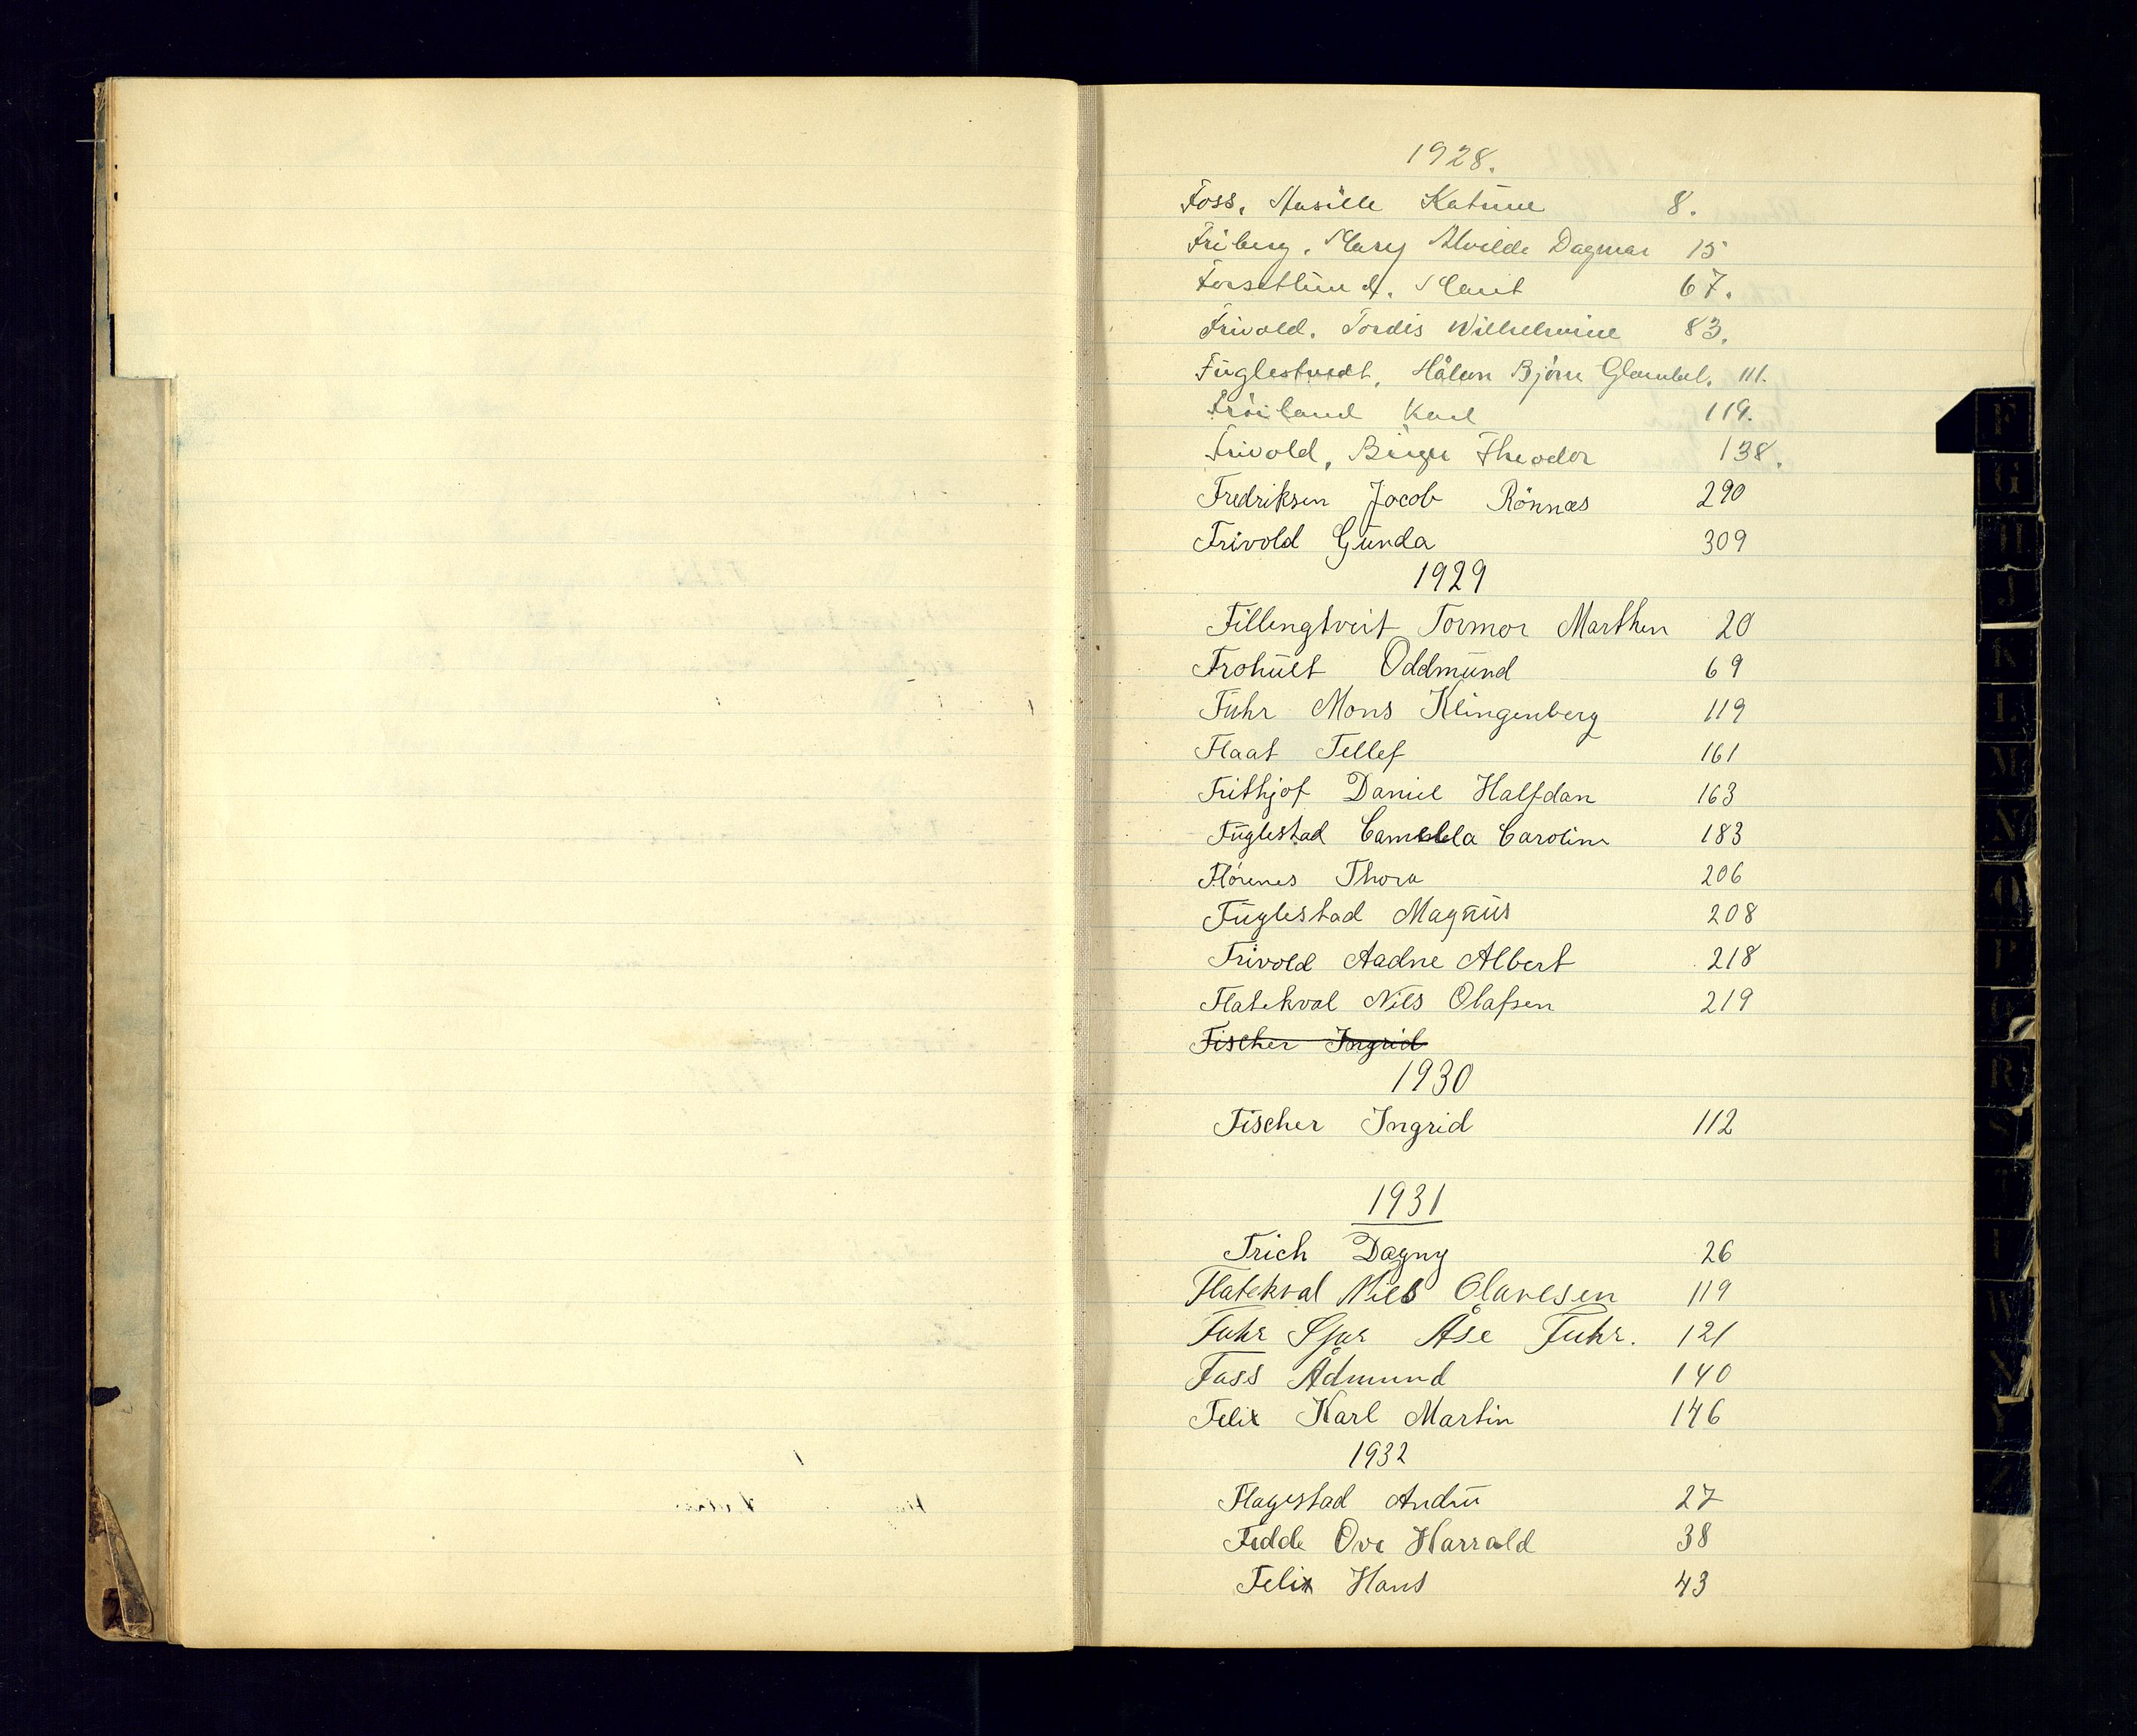 1928.
Foss, Katrine 8.
Friberg, Mary Alvilde Dagmar 15
Forsetlund, Marit 67.
Frivold, Tordis Wilhelmine 83.
Fuglestvedt, Håkon Bjørn 111.
Fröiland Karl 119.
Frivold, Birger Theodor 138.
Fredriksen Jacob Rönnæs 290
Frivold Gunda 309
1929
Fillingtveit Tormor Marthin 20
Frohult Oddmund 69
Fuhr Mons Klingenberg 119
Flaat Tellef 161
Frithjof Daniel Halfdan 163
Fuglestad Camilla Caroline 183
Flörenes Thora 206
Fuglestad Magnus 208
Frivold Aadne Albert 218
Flatekval Nils Olafsen 219
Fischer Ingrid
1930
Fischer Ingrid 112
1931
Frich Dagny 26
Flatekval Niels Olavesen 119
Fuhr Åse Fuhr. 121
Foss Ådmund 140
Felix Karl Martin 146
1932
Flagestad Andrü 27
Fedde Ove Harrald 38
Felix Hans 43
F
G
H
J
K
L
M
N
O
P
Q
R
S
W